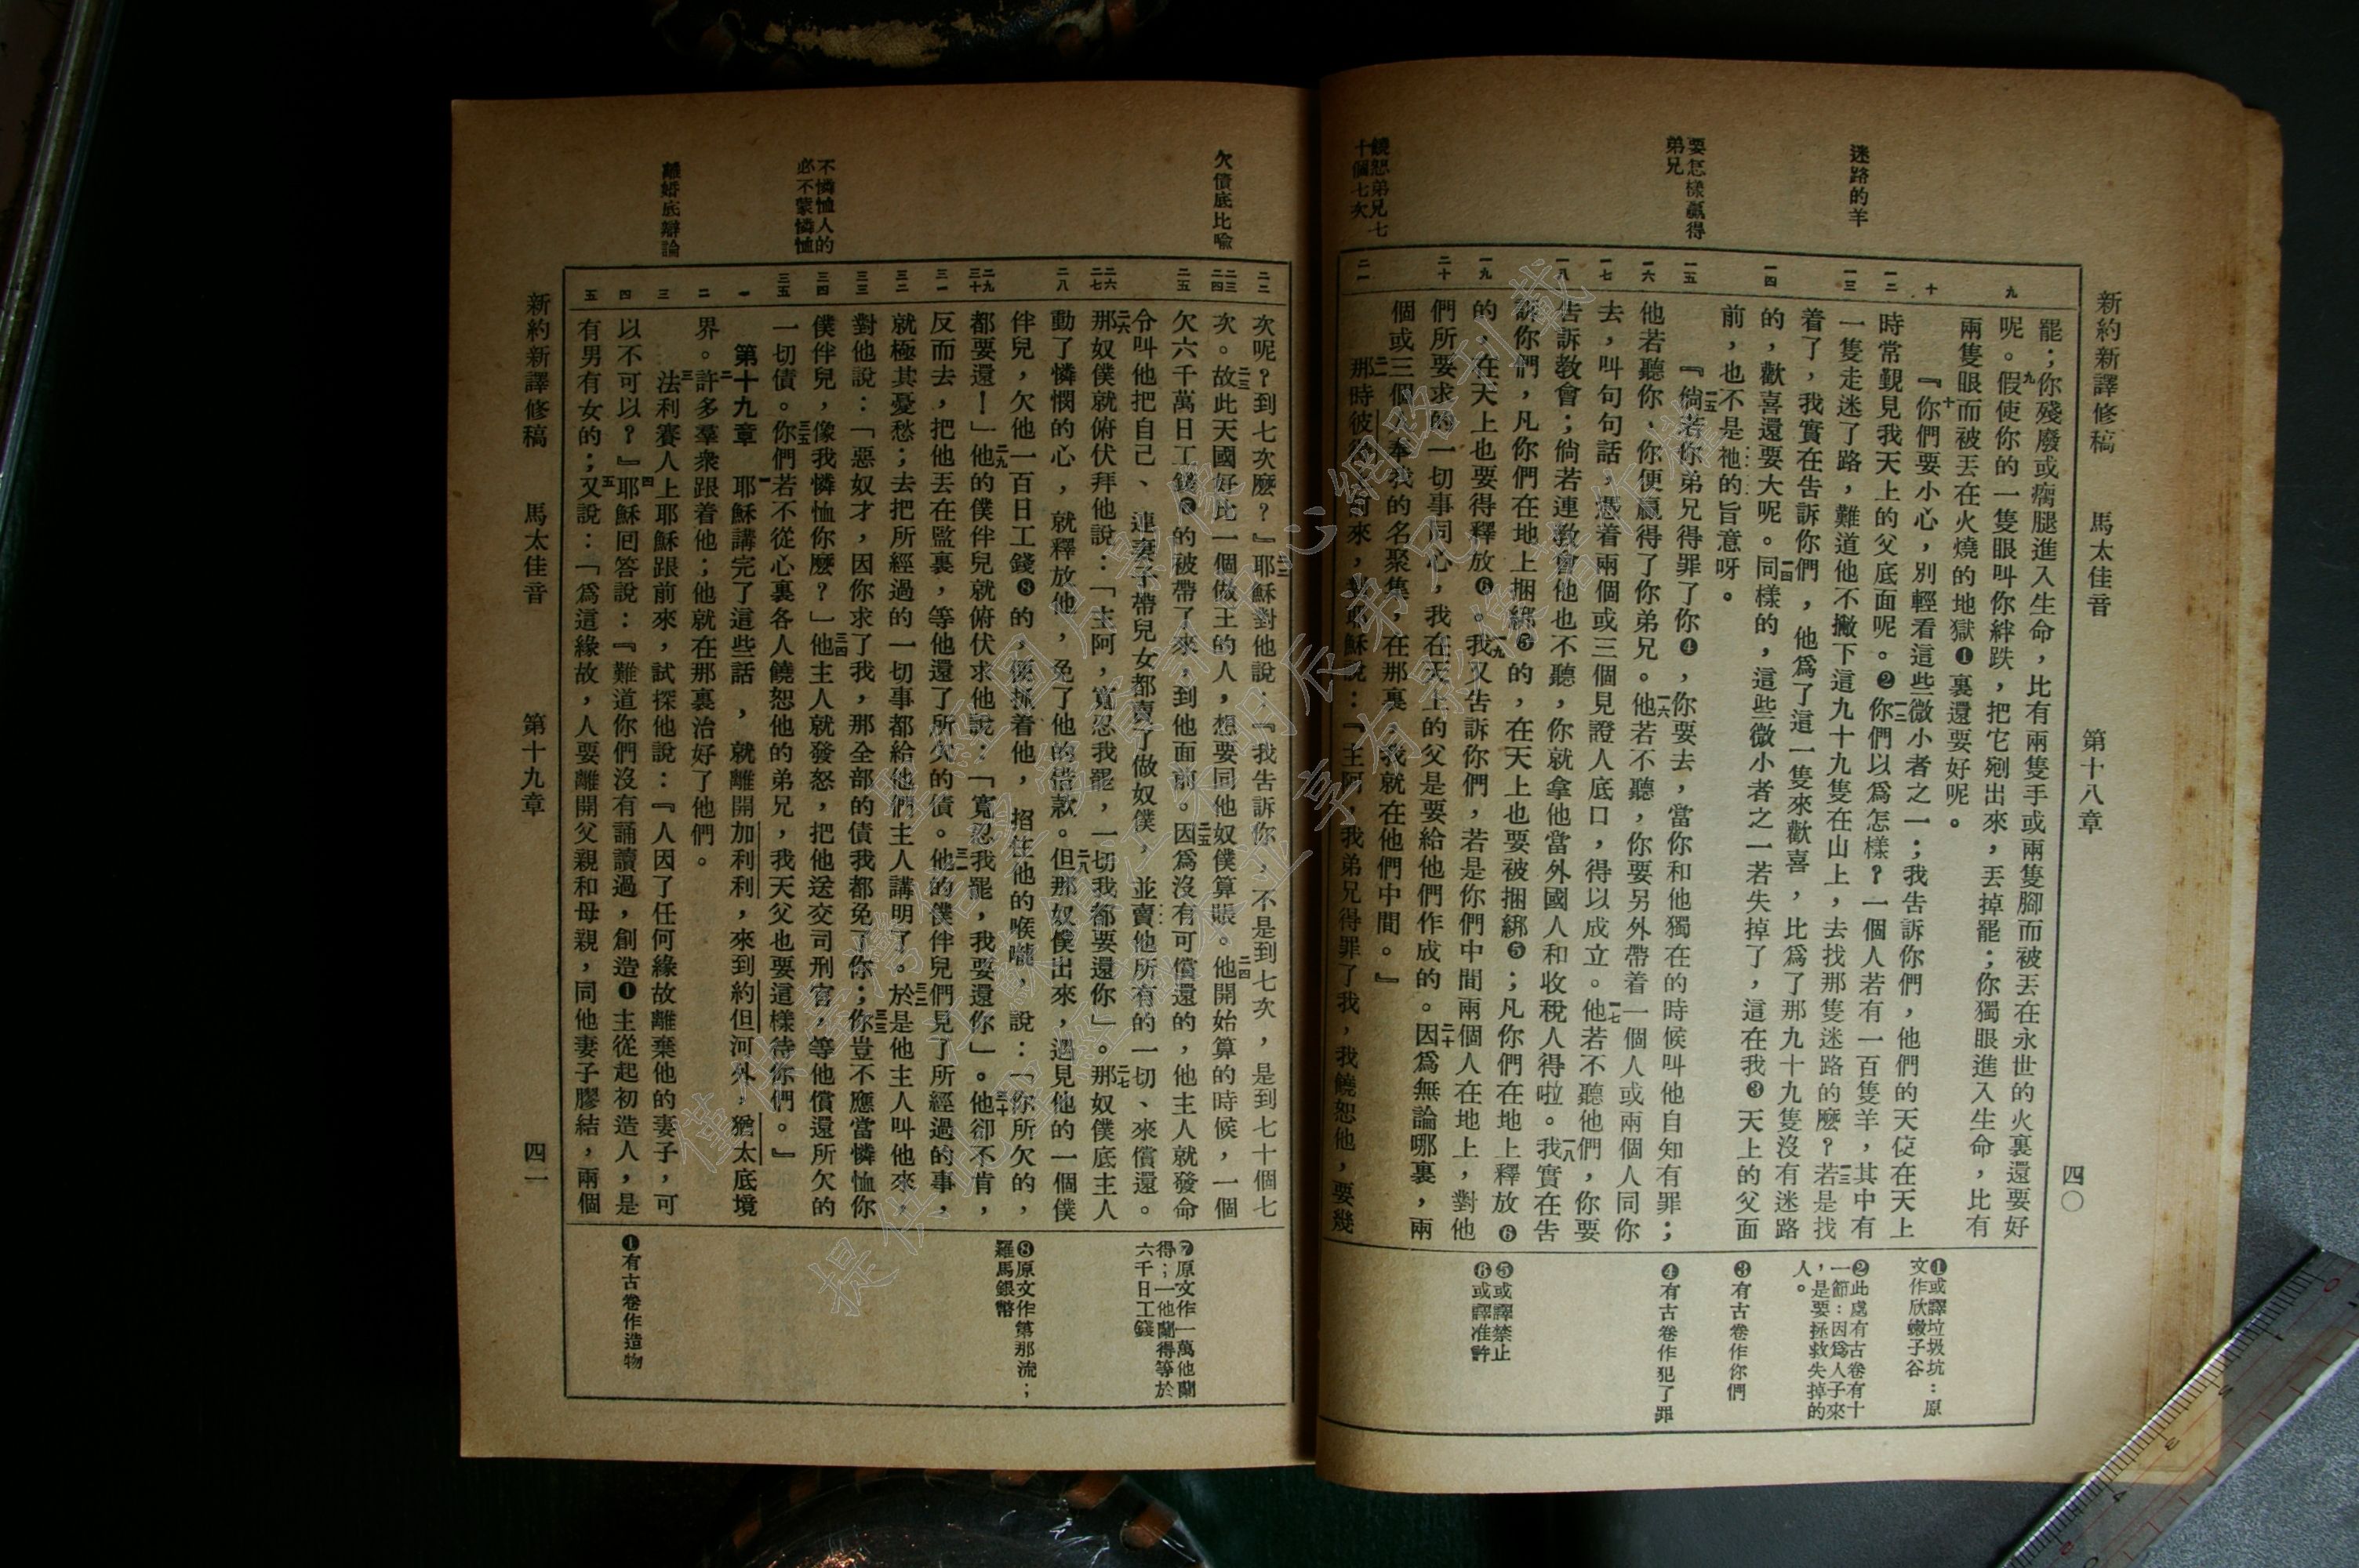 新約新譯修稿　馬太佳音　第十八章　四〇
迷路的羊
要怎樣贏得
弟兄
饒恕弟兄七
十個七次
九
十
一二
一三
一四
一五
一六
一七
一八
一九
二十
二一
罷；你殘廢或瘸腿進入生命，比有兩隻手或兩隻腳而被丟在永世的火裏還要好
呢。九假使你的一隻眼叫你絆跌，把它剜出來，丟掉罷；你獨眼進入生命，比有
兩隻眼而被丟在火燒的地獄❶裏還要好呢。
『十你們要小心，別輕看這些微小者之一；我告訴你們，他們的天使在天上
時常覲見我天上的父底面呢。❷一二你們以爲怎樣？一個人若有一百隻羊，其中有
一隻走迷了路，難道他不撇下這九十九隻在山上，去找那隻迷路的麼？一三若是找
着了，我實在告訴你們，他爲了這一隻來歡喜，比爲了那九十九隻沒有迷路
的，歡喜還要大呢。一四同樣的，這些微小者之一若失掉了，這在我❸天上的父面
前，也不是祂的旨意呀。
『一五倘若你弟兄得罪了你❹，你要去，當你和他獨在的時候叫他自知有罪；
他若聽你，你便贏得了你弟兄。一六他若不聽，你要另外帶着一個人或兩個人同你
去，叫句句話，憑着兩個或三個見證人底口，得以成立。一七他若不聽他們，你要
告訴教會；倘若連教會他也不聽，你就拿他當外國人和收稅人得啦。一八我實在告
訴你們，凡你們在地上捆綁❺的，在天上也要被捆綁❺；凡你們在地上釋放❻
的，在天上也要得釋放❻。一九我又告訴你們，若是你們中間兩個人在地上，對他
們所要求的一切事同心，我在天上的父是要給他們作成的。二十因爲無論哪裏，兩
個或三個人奉我的名聚集，在那裏，我就在他們中間。』
二一那時彼得前來，對耶穌說：『主阿，我弟兄得罪了我，我饒恕他，要幾
❶或譯垃圾坑：原
文作欣嫩子谷
❷此處有古卷有十
一節：因爲人子來
，是要拯救失掉的
人。
❸有古卷作你們
❹有古卷作犯了罪
❺或譯禁止
❻或譯准許
欠債底比喩
不憐恤人的
必不蒙憐恤
離婚底辯論
二二
二三
二四
二五
二六
二七
二八
二九
三十
三一
三二
三三
三四
三五
一
二
三
四
五
次呢？到七次麼？』二二耶穌對他說：『我告訴你，不是到七次，是到七十個七
次。二三故此天國好比一個做王的人，想要同他奴僕算賬。二四他開始算的時候，一個
欠六千萬日工錢❼的被帶了來，到他面前。二五因爲沒有可償還的，他主人就發命
令叫他把自己、連妻子帶兒女都賣了做奴僕，並賣他所有的一切、來償還。
二六那奴僕就俯伏拜他說：「主阿，寬忍我罷，一切我都要還你」。二七那奴僕底主人
動了憐憫的心，就釋放他，免了他的借款。二八但那奴僕出來，遇見他的一個僕
伴兒，欠他一百日工錢❽的，便抓着他，掐住他的喉嚨，說：「你所欠的，
都要還！」二九他的僕伴兒就俯伏求他說：「寬忍我罷，我要還你」。三十他卻不肯，
反而去，把他丟在監裏，等他還了所欠的債。三一他的僕伴兒們見了所經過的事，
就極其憂愁；去把所經過的一切事都給他們主人講明了。三二於是他主人叫他來，
對他說：「惡奴才，因你求了我，那全部的債我都免了你；三三你豈不應當憐恤你
僕伴兒，像我憐恤你麼？」三四他主人就發怒，把他送交司刑官，等他償還所欠的
一切債。三五你們若不從心裏各人饒恕他的弟兄，我天父也要這樣待你們。』
第十九章　一耶穌講完了這些話，就離開加利利，來到約但河外，猶太底境
界。二許多羣衆跟着他；他就在那裏治好了他們。
三法利賽人上耶穌跟前來，試探他說：『人因了任何緣故離棄他的妻子，可
以不可以？』四耶穌回答說：『難道你們沒有誦讀過，創造❶主從起初造人，是
有男有女的；五又說：「爲這緣故，人要離開父親和母親，同他妻子膠結，兩個
❼原文作一萬他蘭
得；一他蘭得等於
六千日工錢
❽原文作第那流；
羅馬銀幣
❶有古卷作造物
新約新譯修稿　馬太佳音　第十九章　四一